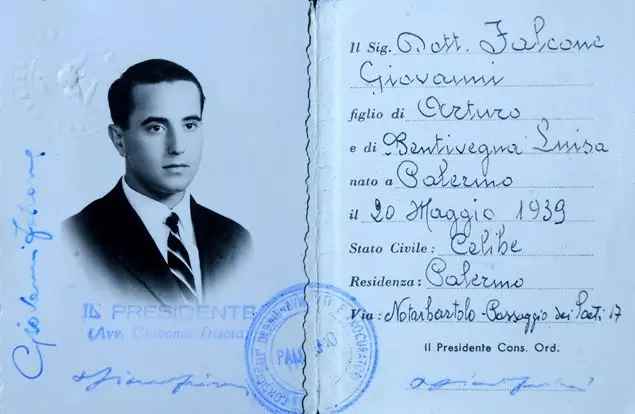 Giovanni Falcone
IL PRESIDENTE
(Avv. Giacomo
PALERMO
Il Sig. Dott. Falcone
Giovanni
figlio di Arturo
e di Bentivegna Luisa
nato a Palermo
il 20 Maggio 1939
Stato Civile: Celibe
Residenza: Palermo
Via: Notarbartolo - Passaggio dei Poeti 17
Il Presidente Cons. Ord.